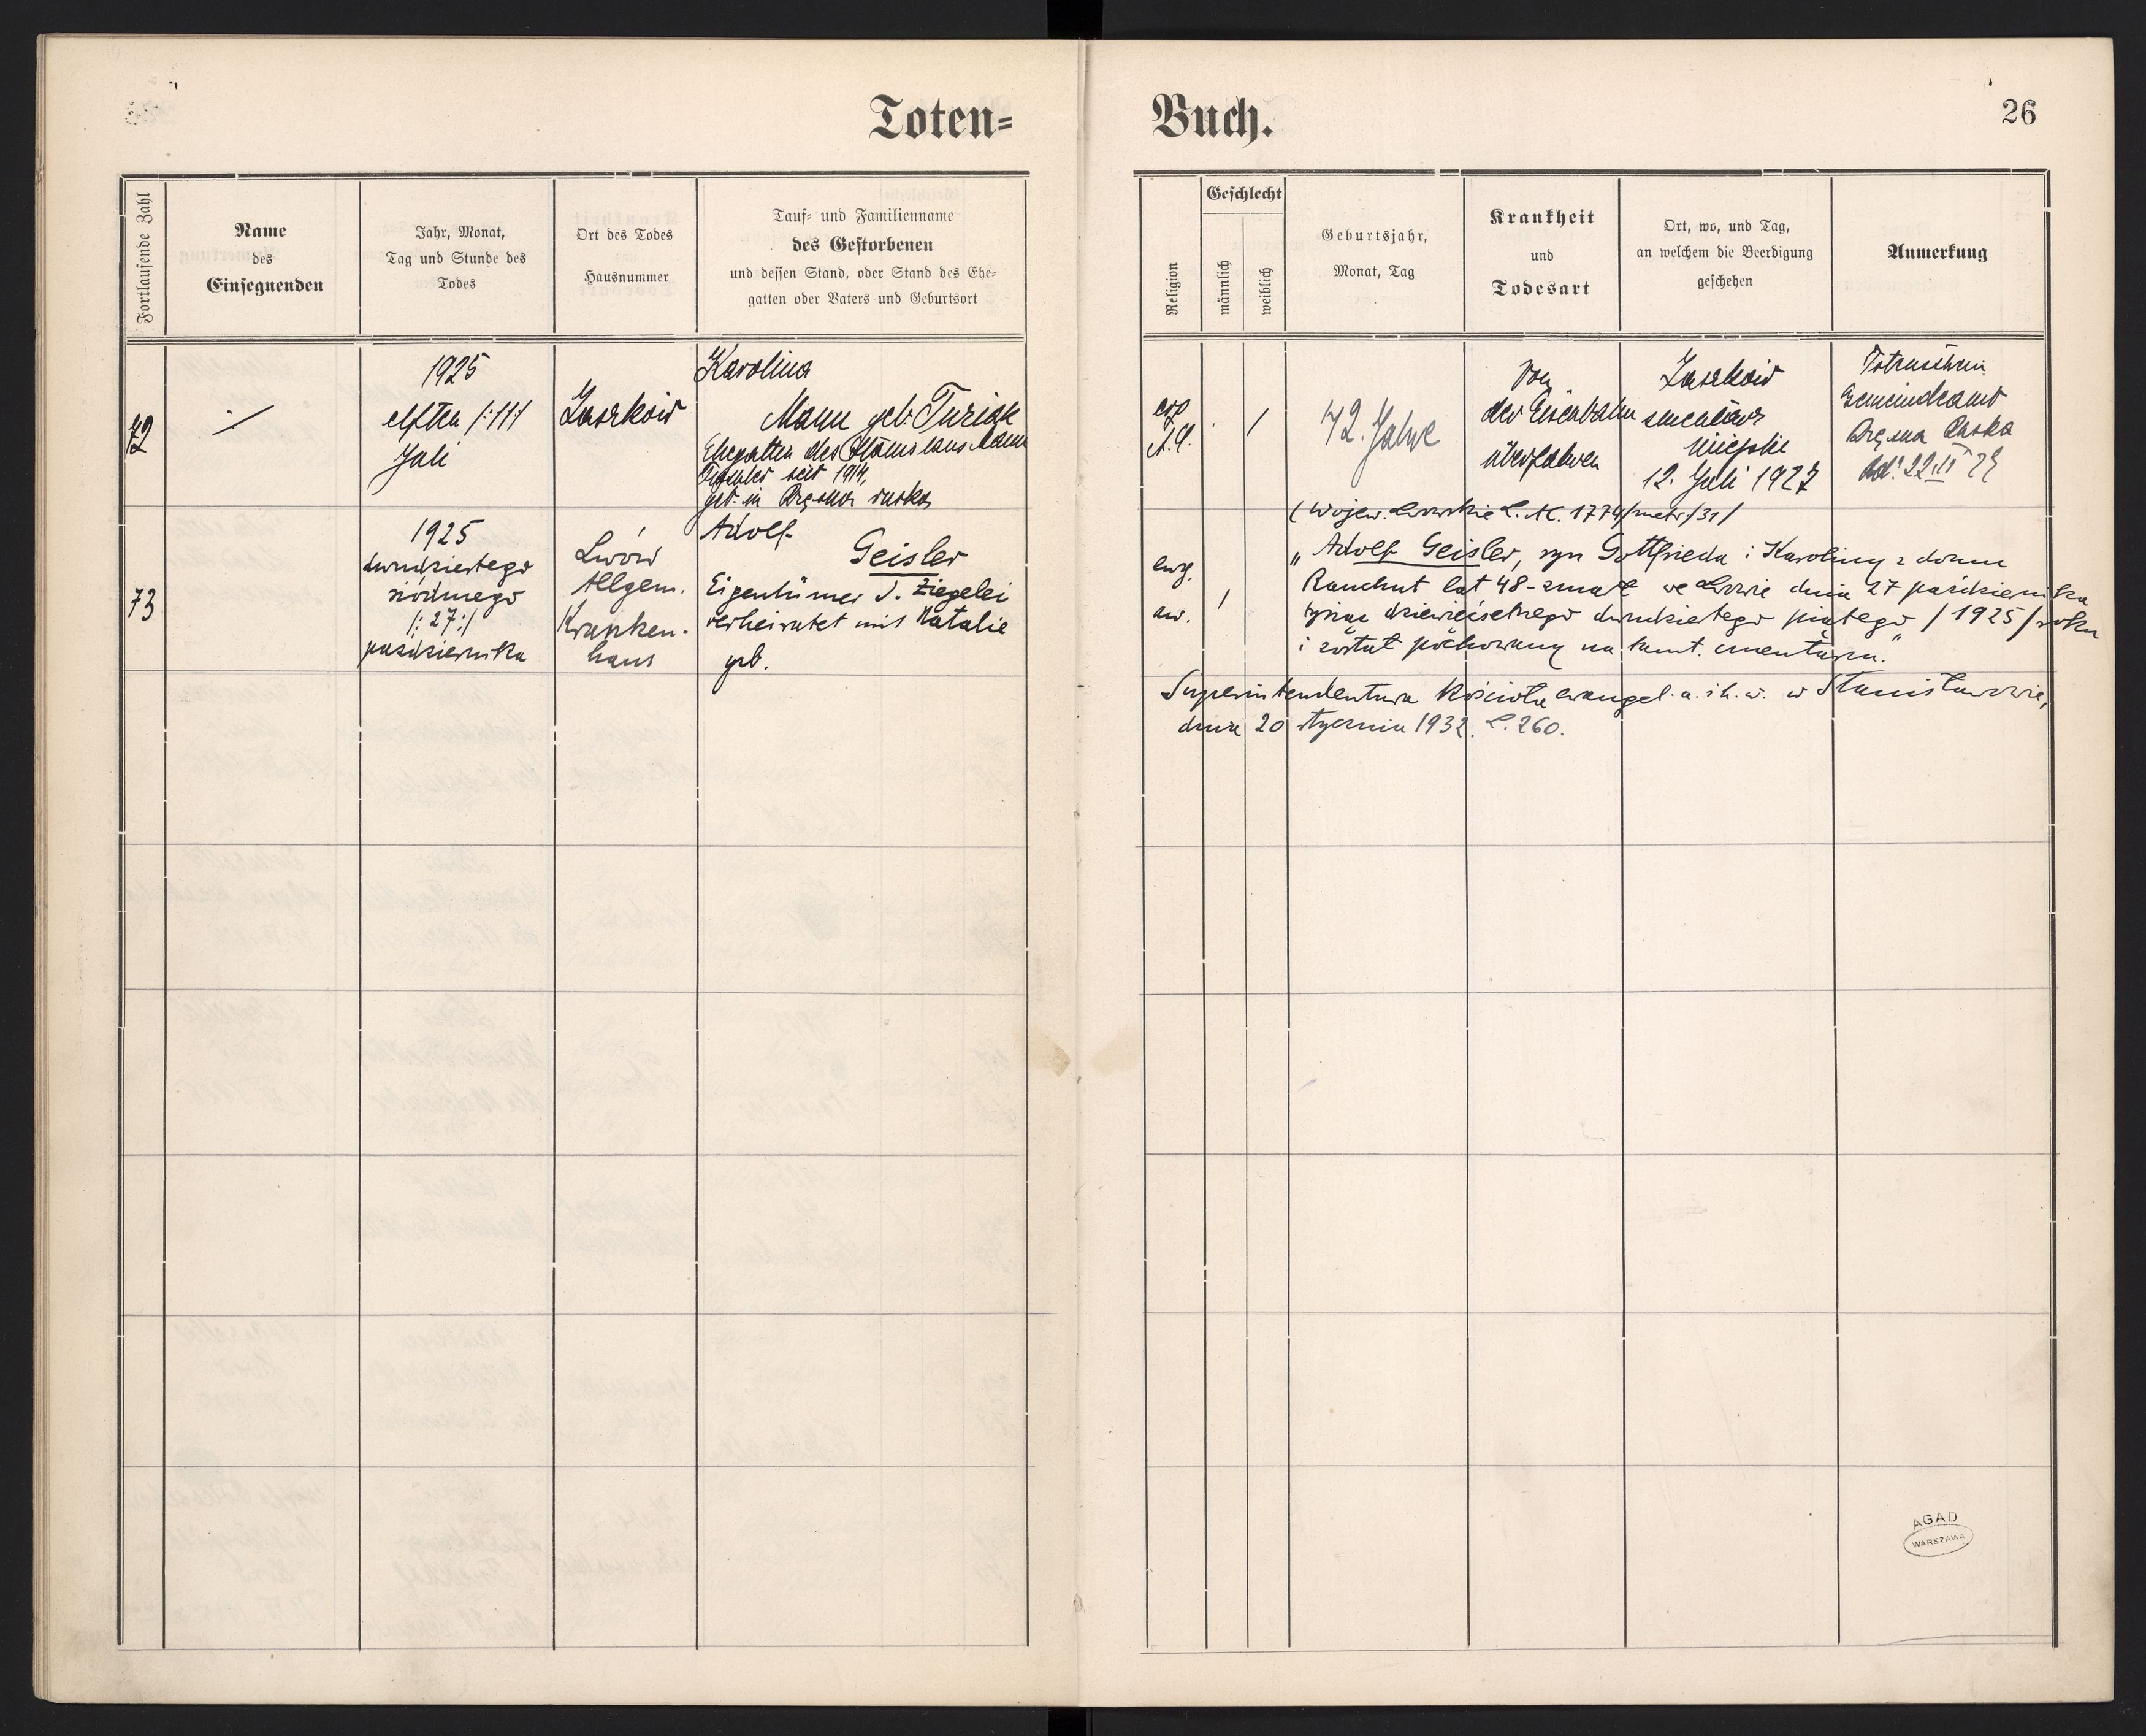 Toten=
Buch.
26
Fortlaufende Zahl
Name
des
Einsegnenden
Jahr, Monat,
Tag und Stunde des
Todes
Ort des Todes
Hausnummer
Tauf= und Familienname
des Gestorbenen
und dessen Stand, oder Stand des Ehe=
gatten oder Vaters und Geburtsort
Religion
Geschlecht
männlich
weiblich
Geburtsjahr,
Monat, Tag
Krankheit
und
Todesart
Ort, wo, und Tag,
an welchem die Beerdigung
geschehen
Anmerkung
72
1925
elften /:11:/
Juli
Zaszków
Karolina
Mann geb. Turiak
Ehegattin des Stanislaus Mann
seit 1914,
geb. in Rzęsna ruska
A.
/
42. Jahre
Von
der Eisenbahn
überfahren
Zaszków
cmentarz
wiejski
12. Juli 1927
Gemeindeamt
Rzęsna Ruska
73
1925
dwudziestego
siódmego
/:27:/
października
Lwów
Allgem.
Kranken-
haus
Adolf
Geisler
Eigentümer d. Ziegelei
verheiratet mit Natalie
geb.
ewg.
aw.
/
(Wojew. Lwowskie L. M. 1774/metr/31/
„Adolf Geisler, syn Gottfrieda i Karoliny z domu
Rauchut lat 48 - zmarł we Lwowie dnia 27 października
tysiąc dziewięćsetnego dwudziestego piątego /1925/ roku
i został pochowany na tamt. cmentarzu."
Superintendentura Kościoła ewangel. a. i h. w. w Stanisławowie,
dnia 20 stycznia 1932. L. 260.
AGAD
WARSZAWA